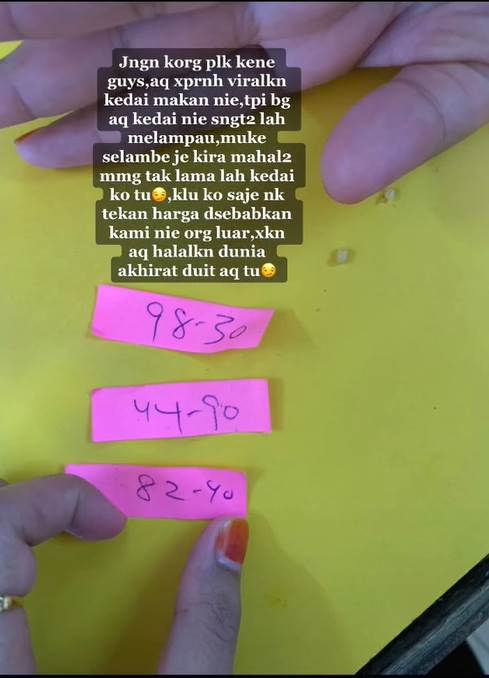 Jngn korg plk kene
guys,aq xprnh viralkn
kedai makan nie,tpi bg
aq kedai nie sngt2 lah
melampau,muke
selambe je kira mahal2
mmg tak lama lah kedai
ko tu😏,klu ko saje nk
tekan harga dsebabkan
kami nie org luar,xkn
aq halalkn dunia
akhirat duit aq tu😏
98-30
44-90
82-40